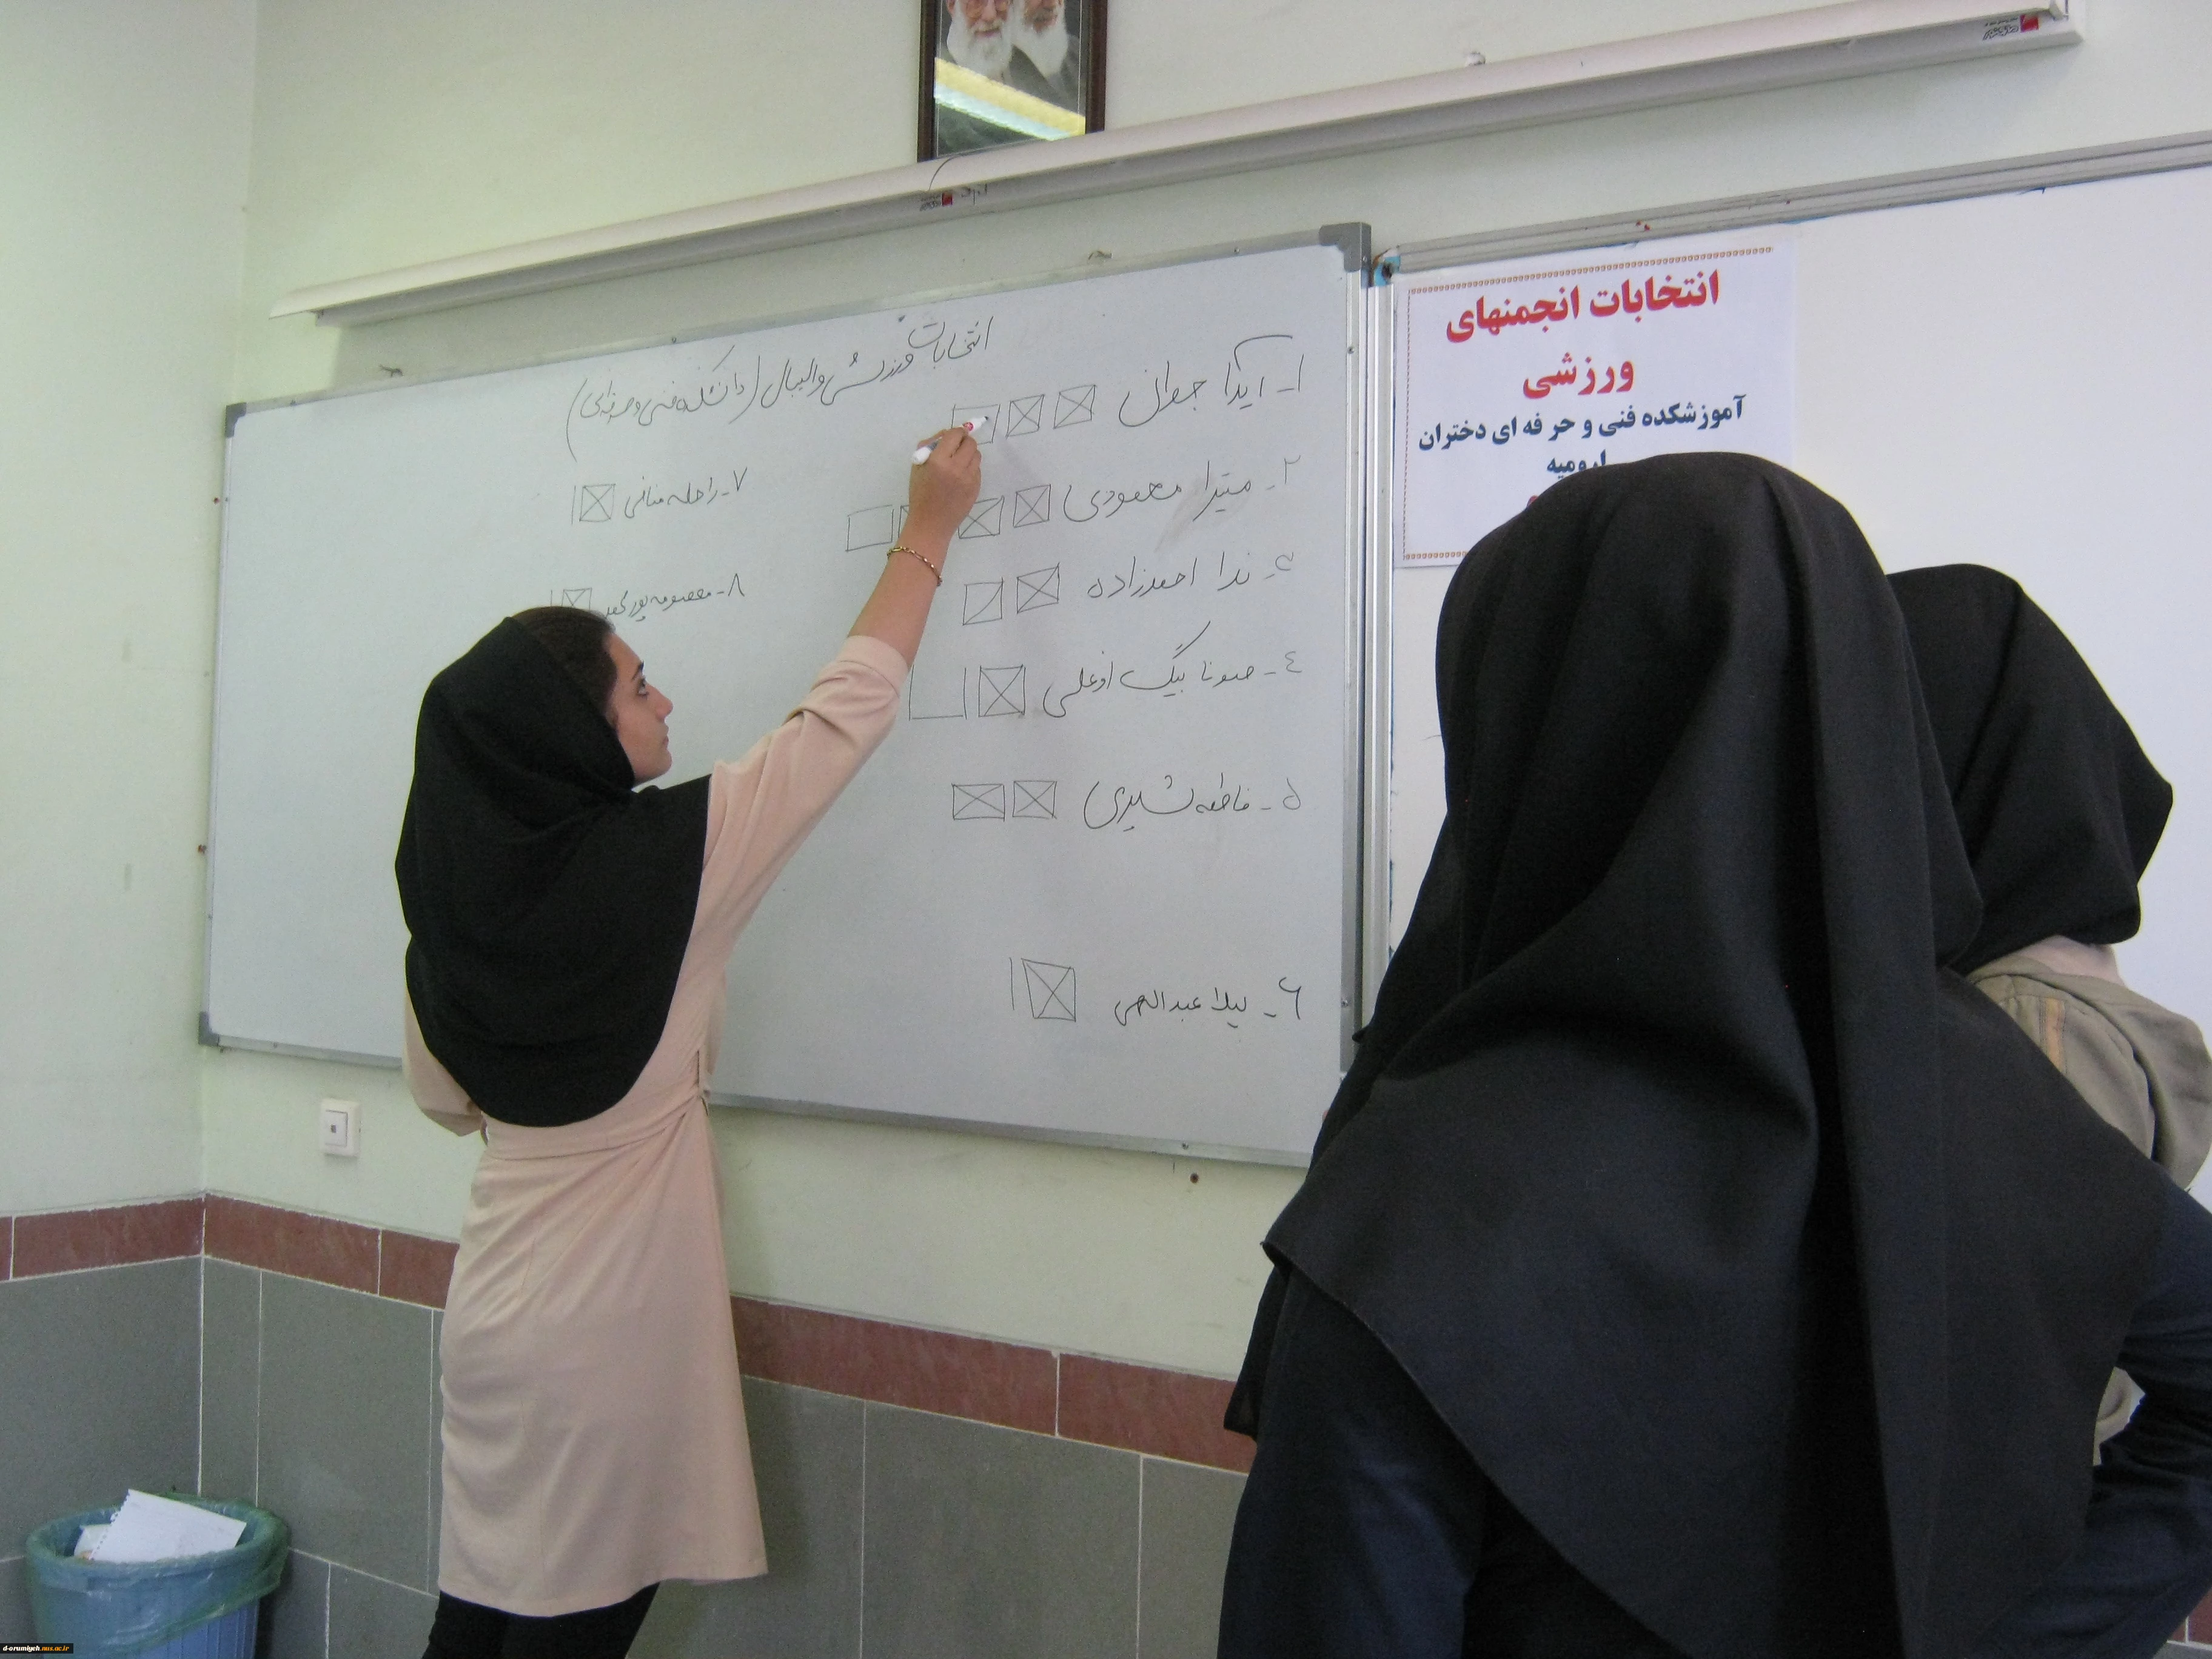 انتخابات ورزشی والیبال (دانشکده فنی و حرفه‌ای)
۱- آیدا جوان
۲- میترا محمودی
۳- ندا احمدزاده
٤- صونا بیگ اوغلی
۵- فاطمه شیری
۶- لیلا عبدالهی
۷- راحله منافی
۸- معصومه پور
انتخابات انجمنهای
ورزشی
آموزشکده فنی و حرفه ای دختران
ارومیه
d-orumiyeh.nus.ac.ir